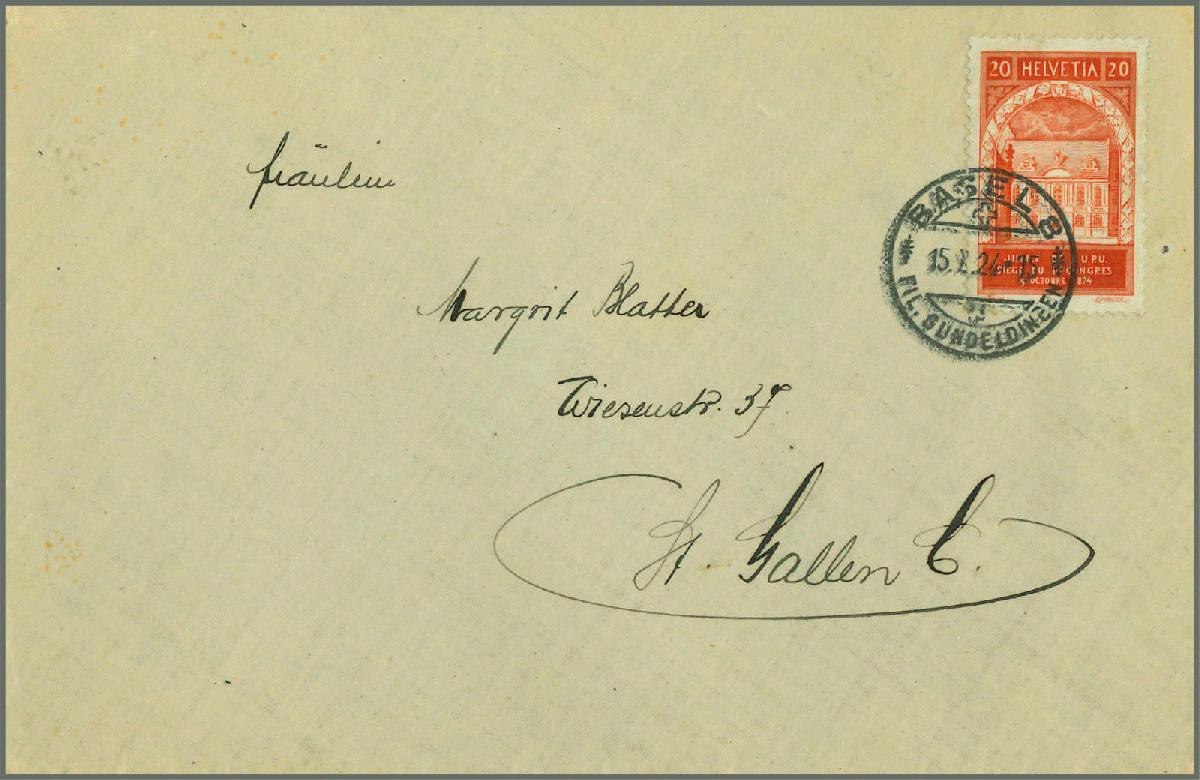 20 HELVETIA 20
BASEL 8
15.X.24-15
FIL. GUNDELDINGEN
UPU
SIEGE DU CONGRES
OCTOBRE 1874
Fräulein
Margrit Blatter
Wiesenstr. 37
St. Gallen C.